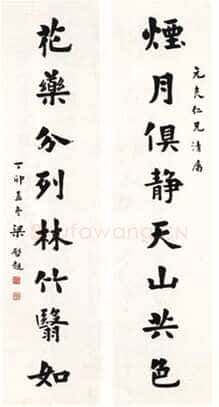 元良仁兄清屬
煙月俱静天山共色
花藥分列林竹翳如
丁卯孟冬 梁啓超